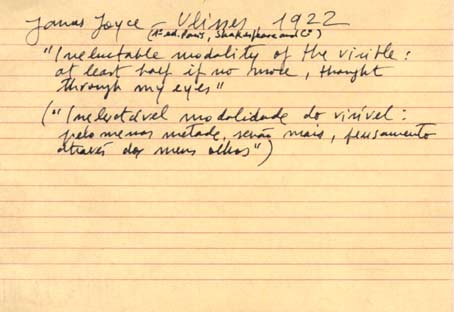 James Joyce Ulisses 1922
(1ª ed. Paris, Shakespeare and Cº)
"Ineluctable modality of the visible:
at least half if no more, thought
through my eyes"
("Inelutável modalidade do visível:
pelo menos metade, senão mais, pensamento
através dos meus olhos")